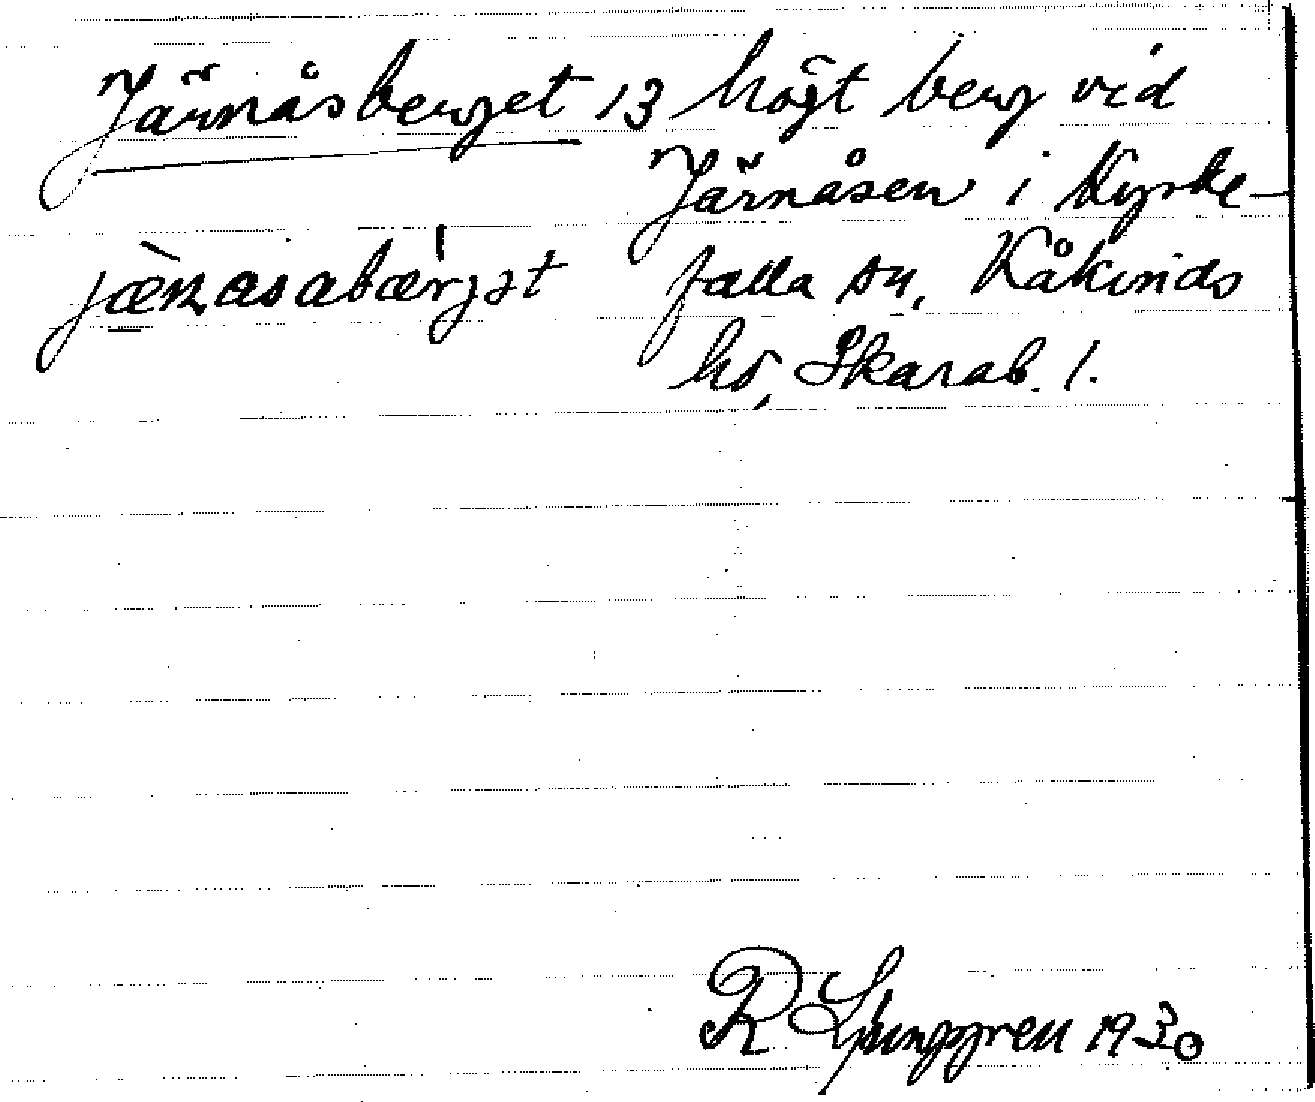 Järnåsberget 13 högt berg vid
Järnåsen i Kyrke-
jæ̀nasabærjət falla sn, Kåkinds
hd, Skarab. l.
R Ljunggren 1930